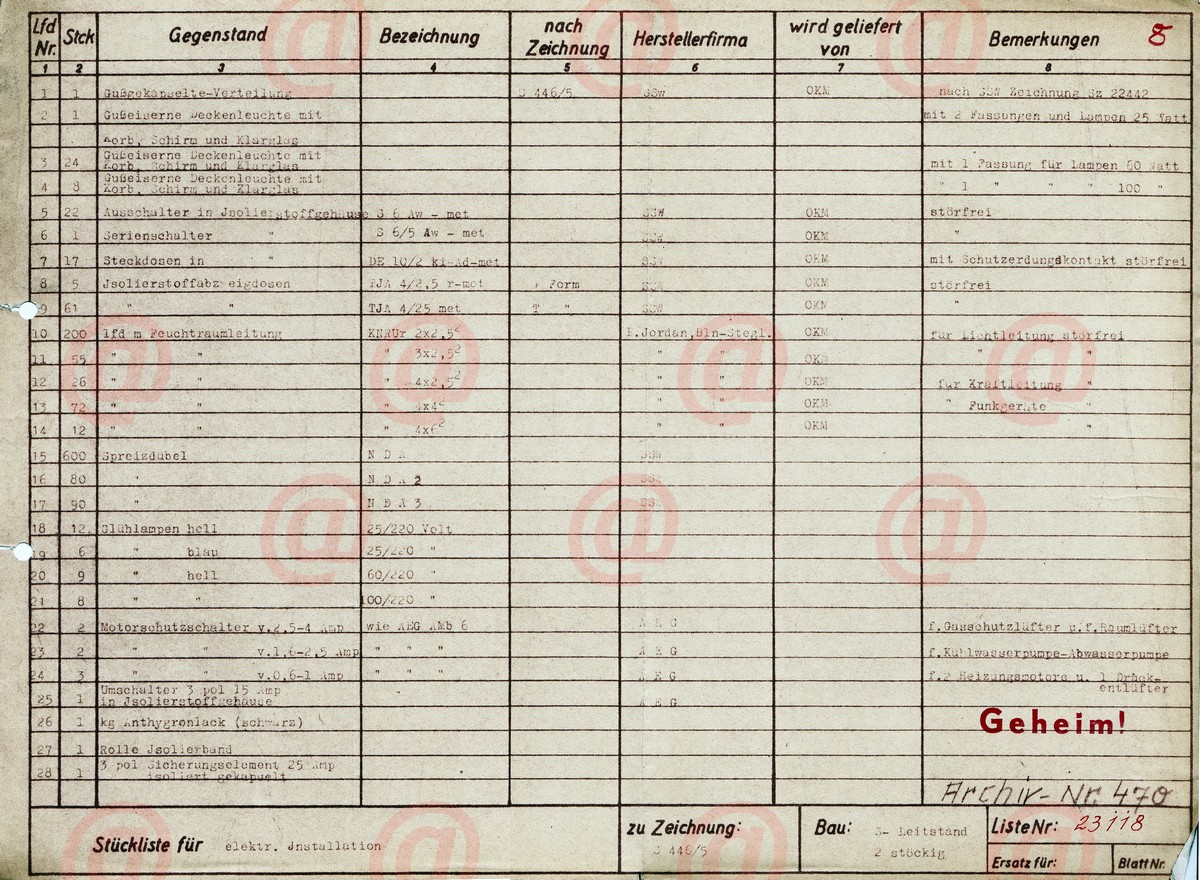 Lfd Nr. Stck Gegenstand Bezeichnung nach Zeichnung Herstellerfirma wird geliefert von Bemerkungen 8
1 2 3 4 5 6 7 8
1 1 Gußgekapselte-Verteilung S 446/5 SSW OKM nach SSW Zeichnung Sz 22442
2 1 Gußeiserne Deckenleuchte mit mit 2 Fassungen und Lampen 25 Watt
Korb, Schirm und Klarglas
3 24 Gußeiserne Deckenleuchte mit
Korb, Schirm und Klarglas mit 1 Fassung für Lampen 60 Watt
4 8 Gußeiserne Deckenleuchte mit
Korb, Schirm und Klarglas " 1 " " " 100 "
5 22 Ausschalter in Jsolierstoffgehäuse S 6 Aw - met SSW OKM störfrei
6 1 Serienschalter " S 6/5 Aw - met SSW OKM "
7 17 Steckdosen in " DE 10/2 ki-Ad-met SSW OKM mit Schutzerdungskontakt störfrei
8 5 Jsolierstoffabzweigdosen TJA 4/2,5 r-met Form SSW OKM störfrei
9 61 " " TJA 4/25 met T " SSW OKM "
10 200 lfd m Feuchtraumleitung KNRUr 2x2,5² F.Jordan,Bln-Stegl. OKM für Lichtleitung störfrei
11 55 " " " 3x2,5² " " OKM " "
12 26 " " " 4x2,5² " " OKM für Kraftleitung "
13 72 " " " 4x4² " " OKM " Funkgeräte "
14 12 " " " 4x6² " " OKM "
15 600 Spreizdübel N D A SSW
16 80 " N D A 2 SSW
17 90 " N D A 3 SSW
18 12 Glühlampen hell 25/220 Volt
19 6 " blau 25/220 "
20 9 " hell 60/220 "
21 8 " " 100/220 "
22 2 Motorschutzschalter v.2,5-4 Amp wie AEG AMb 6 A E G f.Gasschutzlüfter u.f.Raumlüfter
23 2 " " v.1,6-2,5 Amp " " " A E G f.Kühlwasserpumpe-Abwasserpumpe
24 3 " " v.0,6-1 Amp " " " A E G f.2 Heizungsmotore u. 1 Drück-
entlüfter
25 1 Umschalter 3 pol 15 Amp
in Jsolierstoffgehäuse A E G
26 1 kg Anthygronlack (schwarz)
Geheim!
27 1 Rolle Jsolierband
28 1 3 pol Sicherungselement 25 Amp
isoliert gekapselt
Archiv-Nr. 470
Stückliste für elektr. Jnstallation
zu Zeichnung: S 446/5
Bau: S- Leitstand
2 stöckig
Liste Nr: 23118
Ersatz für: Blatt Nr.